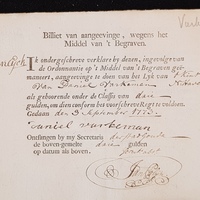 Billiet van aangeevinge, wegens het
Middel van 't Begraven.
Ik ondergeschreve verklare by deezen, ingevolge van
de Ordonnantie op 't Middel van 't Begraven geëmaneert,
aangeevinge te doen van het Lyk van 't Kint
Van Daniel Varkeman
als gehoorende onder de Classis van drie
gulden, om dien conform het voorschreve Regt te voldoen.
Gedaan den 3 September 1773.
Daniel varkeman
Ontfangen by my Secretaris
de boven-gemelte drie gulden
op datum als boven.